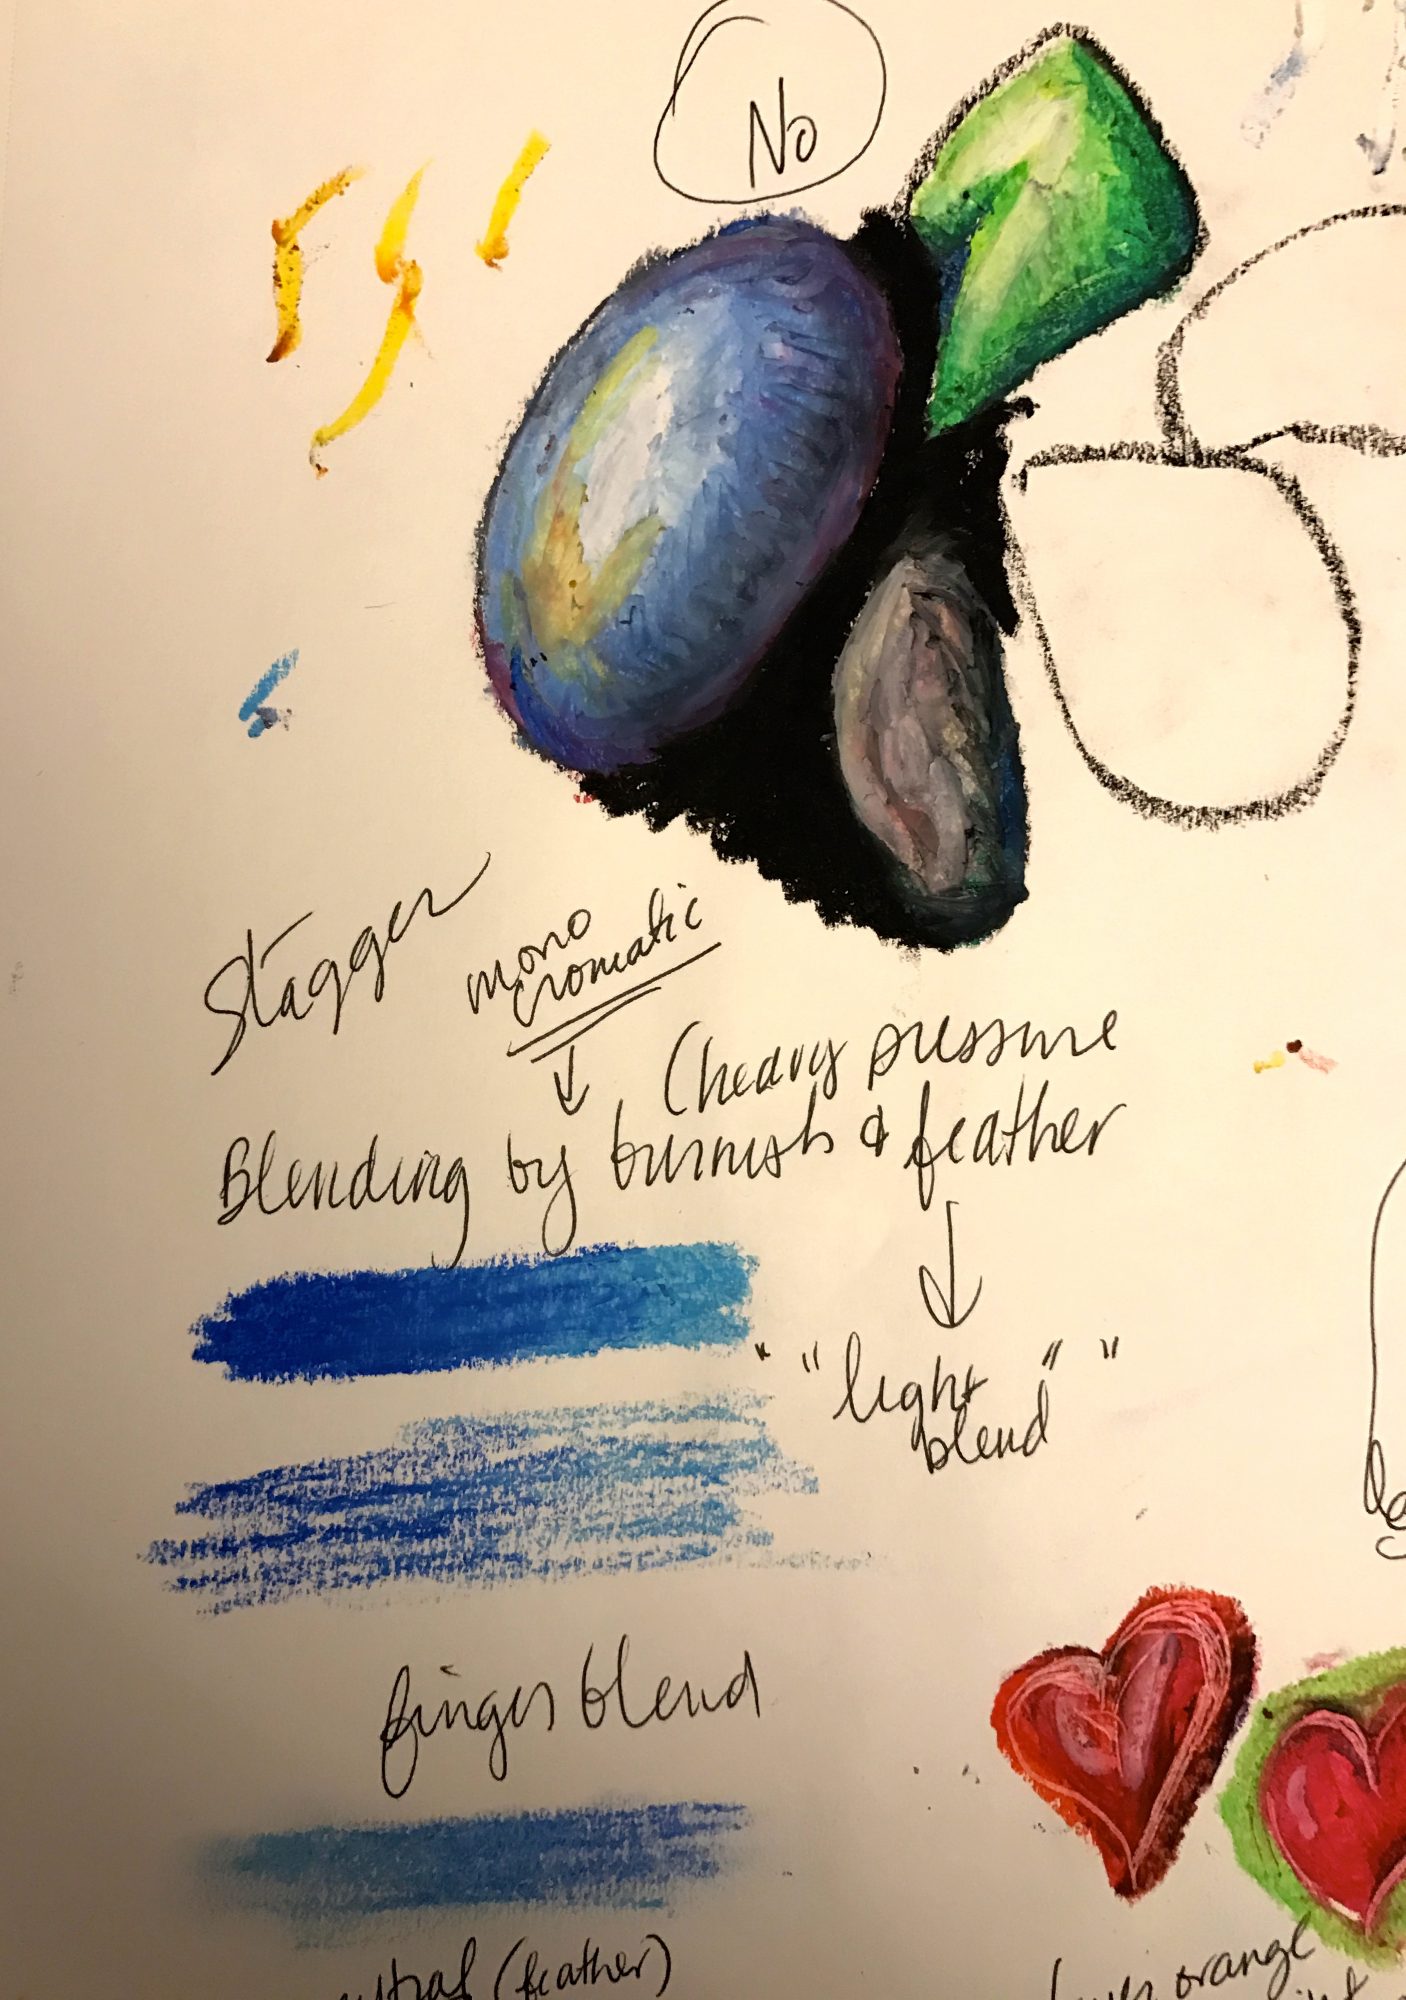 No
Stagger
mono
cromatic
(heavy pressure
Blending by burnish & feather
" "light" "
blend
finger blend
(feather)
orange